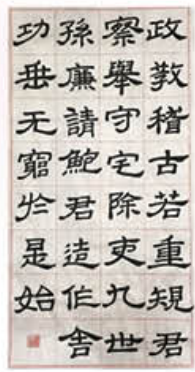 政教稽古若重規君
察舉守宅除吏九世
孫廉請鮑君造作舍
功垂无窮於是始